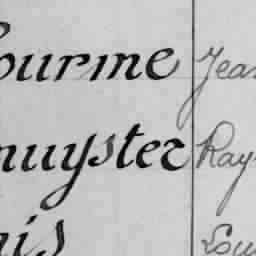 ourme Jean
muyster Ray
is Lou